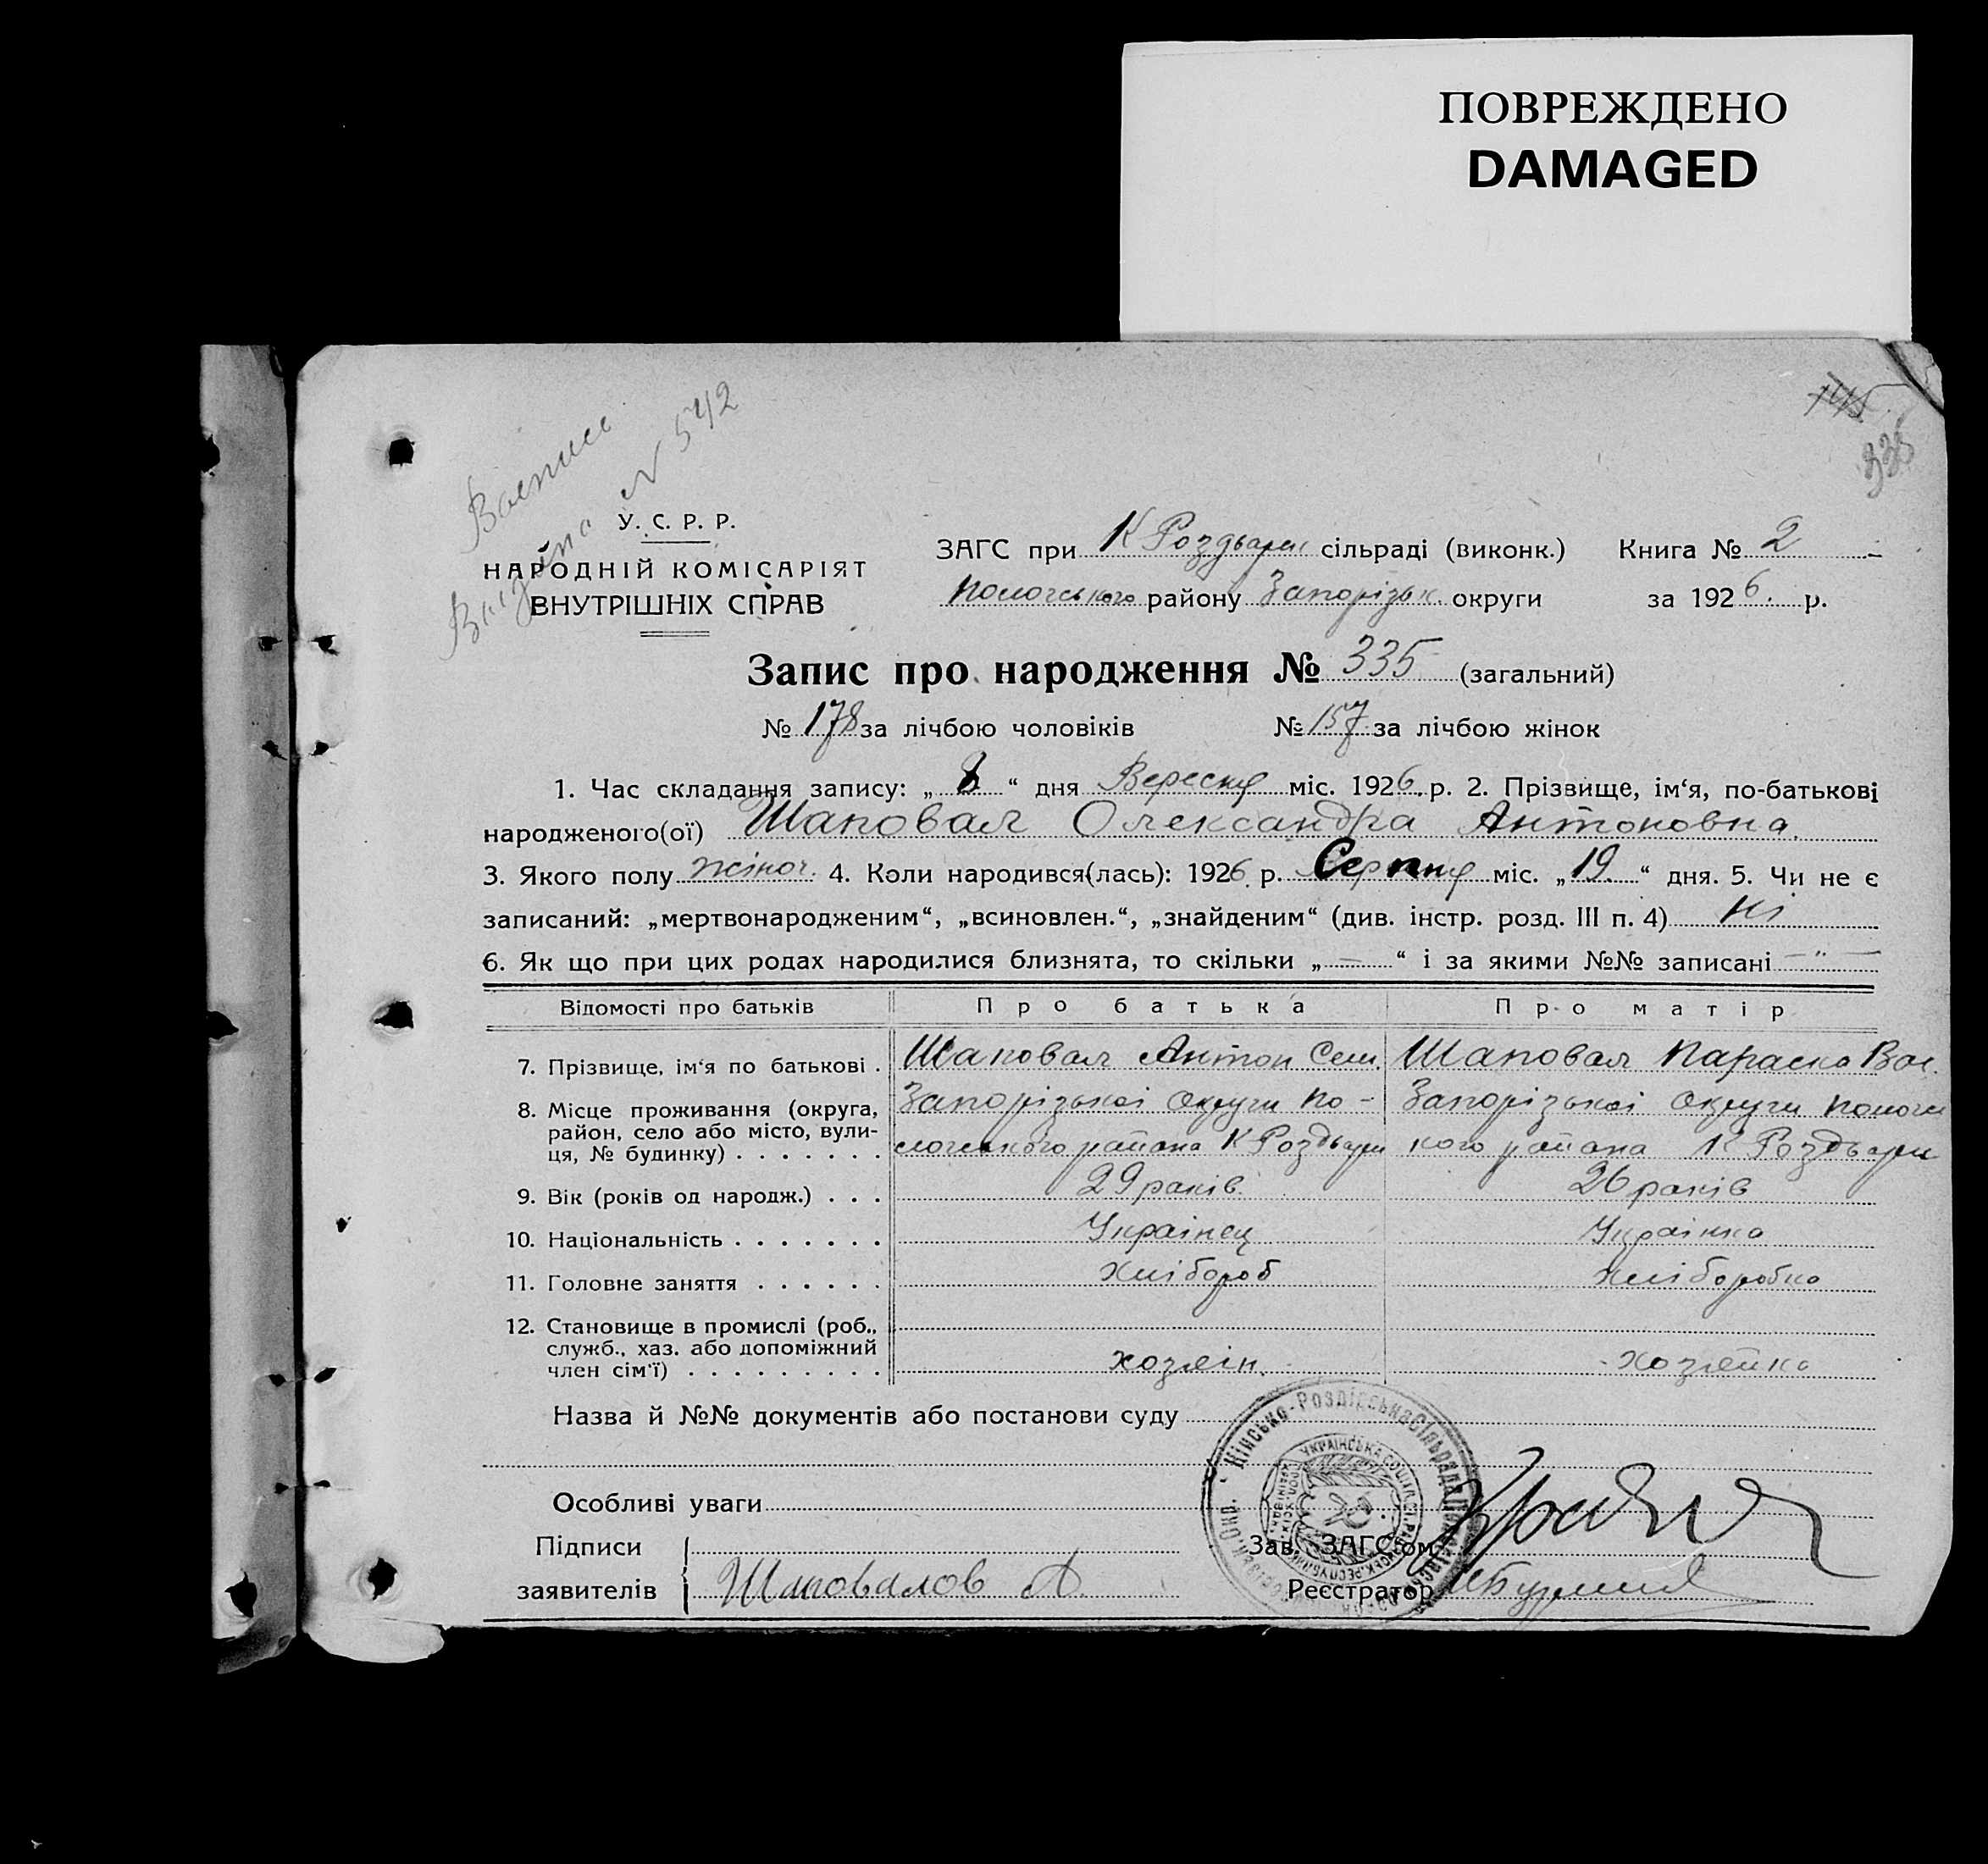 ПОВРЕЖДЕНО
DAMAGED
335
Выпись
Выдана N 542
У. С. Р. Р.
НАРОДНІЙ КОМІСАРІЯТ
ВНУТРІШНІХ СПРАВ
ЗАГС при К Роздьари сільраді (виконк.) Книга № 2
Пологського району Запорізьк. округи за 1926. р.
Запис про народження № 335 (загальний)
№ 178 за лічбою чоловіків № 157 за лічбою жінок
1. Час складання запису: „ 8 “ дня Вересня міс. 1926. р. 2. Прізвище, ім‘я, по-батькові
народженого(ої) Шаповал Олександра Антоновна.
3. Якого полу жіноч. 4. Коли народився(лась): 1926. р. Серпня міс. „ 19. “ дня. 5. Чи не є
записаний: „мертвонародженим“, „всиновлен.“, „знайденим“ (див. інстр. розд. III п. 4) Ні
6. Як що при цих родах народилися близнята, то скільки „ — “ і за якими №№ записані — " —
Відомості про батьків Про батька Про матір
7. Прізвище, ім‘я по батькові . Шаповал Антон Сем. Шаповал Параска Вас.
8. Місце проживання (округа, Запорізької Округи По- Запорізької Округи Пологс
район, село або місто, вули-
ця, № будинку) . . . . . . . логського района К Роздьари кого района К Роздьари
9. Вік (років од народж.) . . . 29 років. 26 років
10. Національність . . . . . . . Українец Українка
11. Головне заняття . . . . . . Хлібороб Хліборобка
12. Становище в промислі (роб.,
служб., хаз. або допоміжний
член сім‘ї) . . . . . . . . . хозяін. Хозяйка
Назва й №№ документів або постанови суду
Особливі уваги
Підписи Зав. ЗАГС‘ом
заявителів Шаповалов А. Реєстратор
Кінсько-Роздірська Сільрада